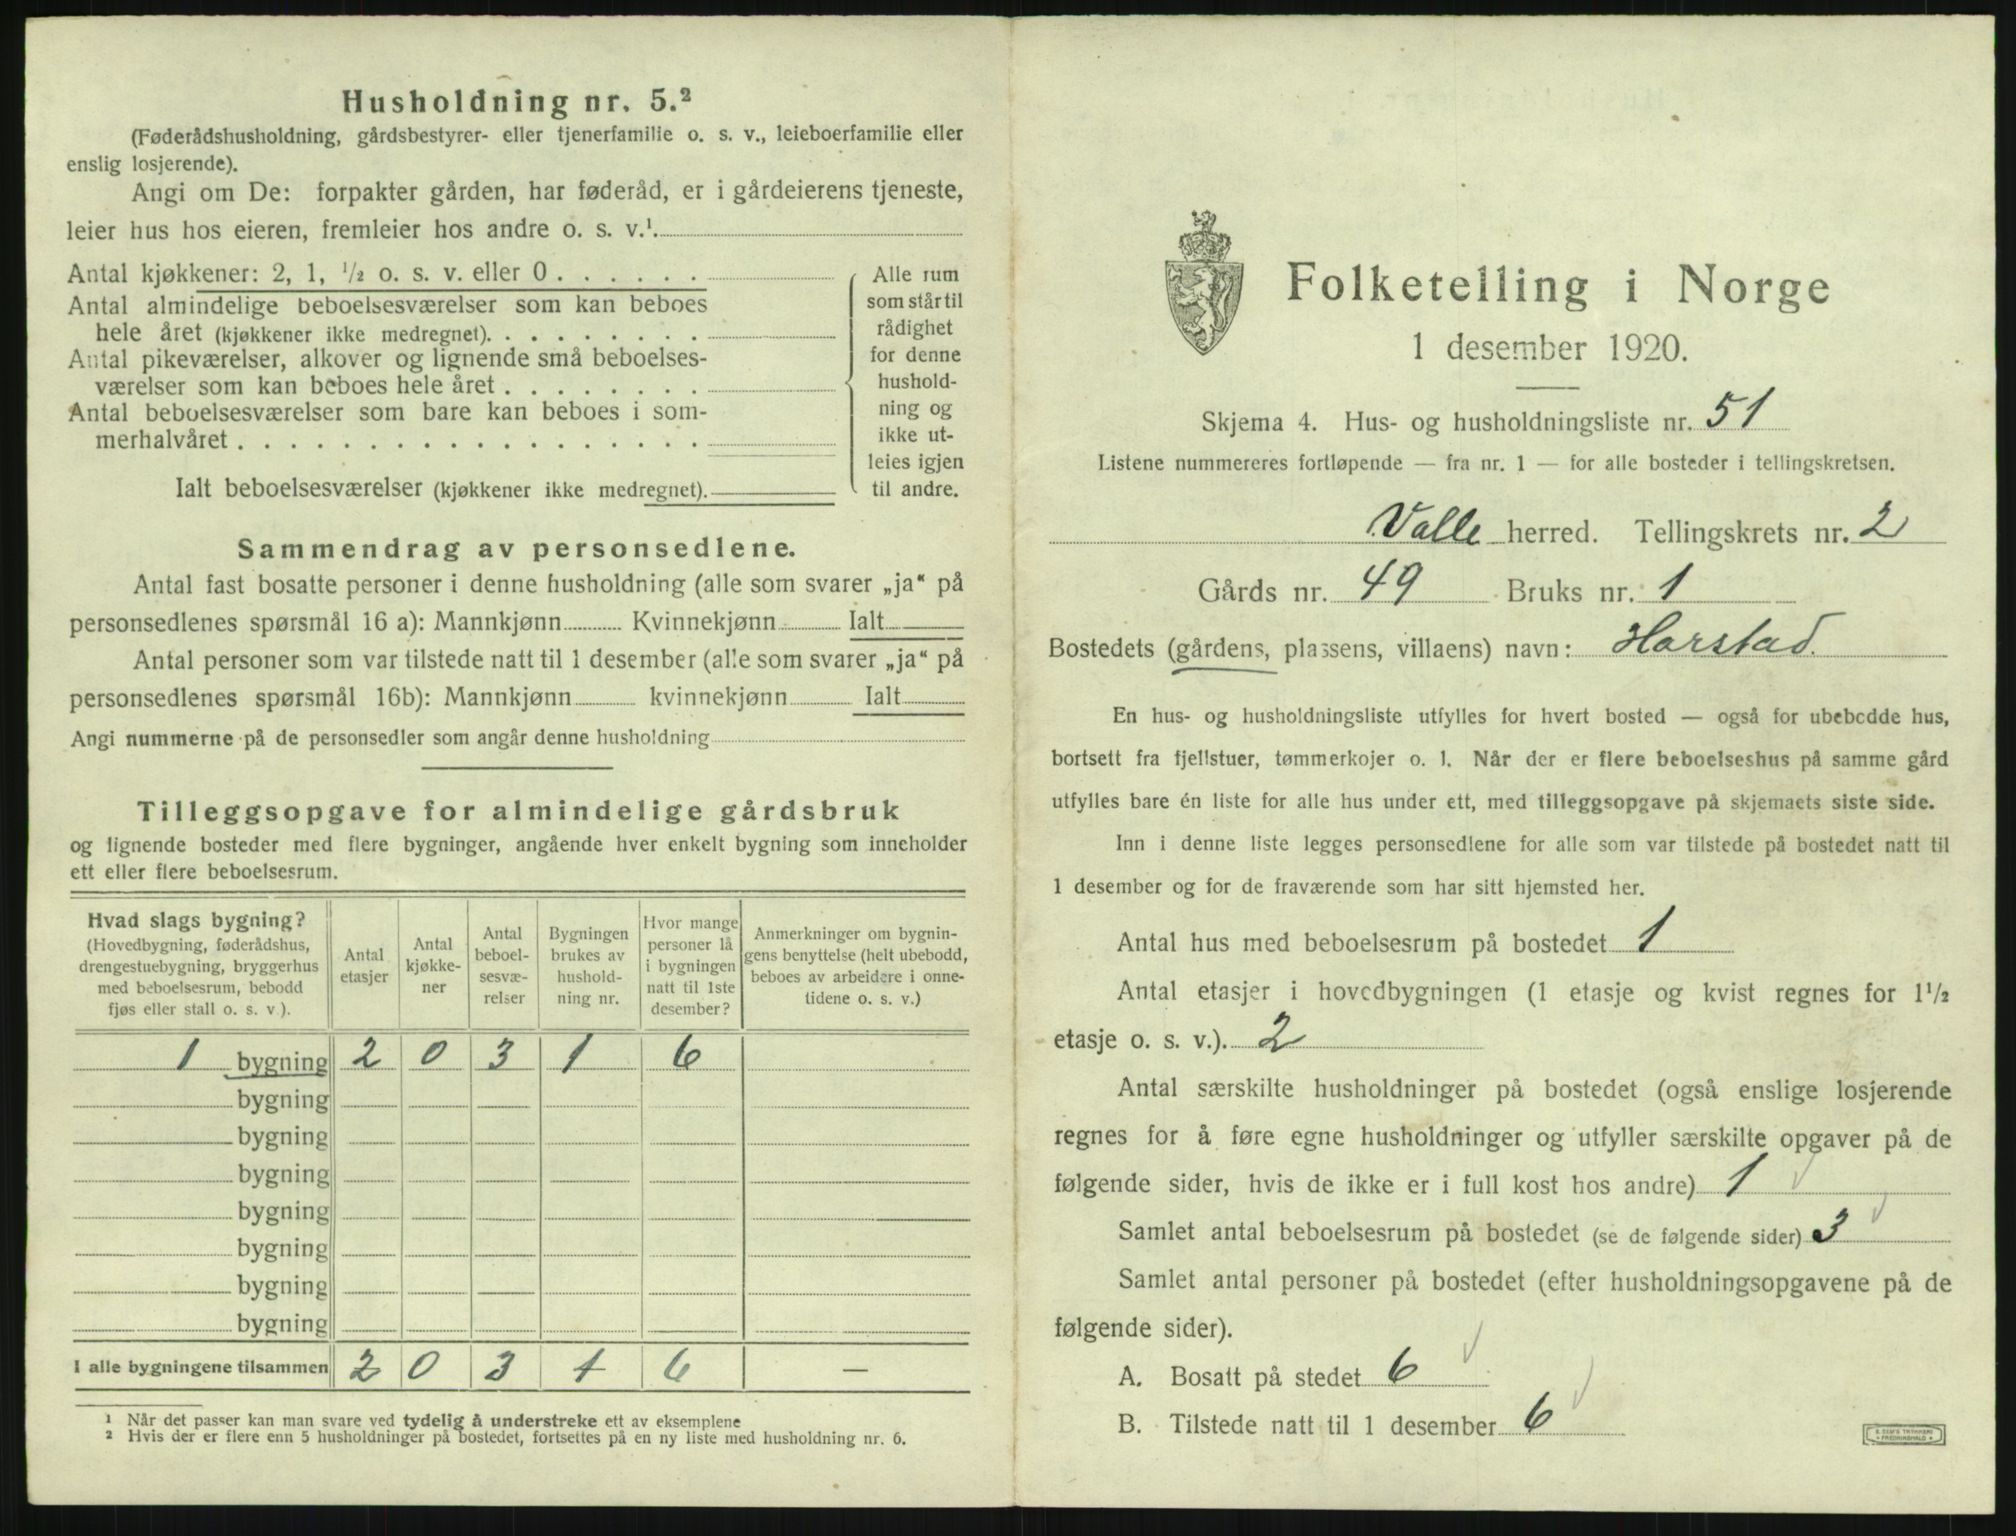 Husholdning nr. 5.²
(Føderådshusholdning, gårdsbestyrer- eller tjenerfamilie o. s. v., leieboerfamilie eller
enslig losjerende).
Angi om De: forpakter gården, har føderåd, er i gårdeierens tjeneste,
leier hus hos eieren, fremleier hos andre o. s. v.¹.
Antal kjøkkener: 2, 1, ½ o. s. v. eller 0 . . . . . .
Antal almindelige beboelsesværelser som kan beboes
hele året (kjøkkener ikke medregnet). . . . . . . . .
Antal pikeværelser, alkover og lignende små beboelses-
værelser som kan beboes hele året . . . . . . . .
Antal beboelsesværelser som bare kan beboes i som-
merhalvåret . . . . . . . . . . . . . . . . . .
Ialt beboelsesværelser (kjøkkener ikke medregnet).
Alle rum
som står til
rådighet
for denne
hushold-
ning og
ikke ut-
leies igjen
til andre.
Sammendrag av personsedlene.
Antal fast bosatte personer i denne husholdning (alle som svarer „ja“ på
personsedlenes spørsmål 16 a): Mannkjønn Kvinnekjønn Ialt
Antal personer som var tilstede natt til 1 desember (alle som svarer „ja“ på
personsedlenes spørsmål 16b): Mannkjønn kvinnekjønn Ialt
Angi nummerne på de personsedler som angår denne husholdning
Tilleggsopgave for almindelige gårdsbruk
og lignende bosteder med flere bygninger, angående hver enkelt bygning som inneholder
ett eller flere beboelsesrum.
Hvad slags bygning?
(Hovedbygning, føderådshus,
drengestuebygning, bryggerhus
med beboelsesrum, bebodd
fjøs eller stall o. s. v.).
Antal
etasjer
Antal
kjøkke-
ner
Antal
beboel-
sesvæ-
relser
Bygningen
brukes av
hushold-
ning nr.
Hvor mange
personer lå
i bygningen
natt til 1ste
desember?
Anmerkninger om bygnin-
gens benyttelse (helt ubebodd,
beboes av arbeidere i onne-
tidene o. s. v.)
1 bygning 2 0 3 1 6
bygning
bygning
bygning
bygning
bygning
bygning
bygning
I alle bygningene tilsammen 2 0 3 1 6 —
¹ Når det passer kan man svare ved tydelig å understreke ett av eksemplene
² Hvis der er flere enn 5 husholdninger på bostedet, fortsettes på en ny liste med husholdning nr. 6.
Folketelling i Norge
1 desember 1920.
Skjema 4. Hus- og husholdningsliste nr. 51
Listene nummereres fortløpende — fra nr. 1 — for alle bosteder i tellingskretsen.
Valle herred. Tellingskrets nr. 2
Gårds nr. 49 Bruks nr. 1
Bostedets (gårdens, plassens, villaens) navn: Harstad.
En hus- og husholdningsliste utfylles for hvert bosted — også for ubebodde hus,
bortsett fra fjellstuer, tømmerkojer o. l. Når der er flere beboelseshus på samme gård
utfylles bare én liste for alle hus under ett, med tilleggsopgave på skjemaets siste side.
Inn i denne liste legges personsedlene for alle som var tilstede på bostedet natt til
1 desember og for de fraværende som har sitt hjemsted her.
Antal hus med beboelsesrum på bostedet 1
Antal etasjer i hovedbygningen (1 etasje og kvist regnes for 1½
etasje o. s. v.). 2
Antal særskilte husholdninger på bostedet (også enslige losjerende
regnes for å føre egne husholdninger og utfyller særskilte opgaver på de
følgende sider, hvis de ikke er i full kost hos andre) 1
Samlet antal beboelsesrum på bostedet (se de følgende sider) 3
Samlet antal personer på bostedet (efter husholdningsopgavene på de
følgende sider).
A. Bosatt på stedet 6
B. Tilstede natt til 1 desember 6